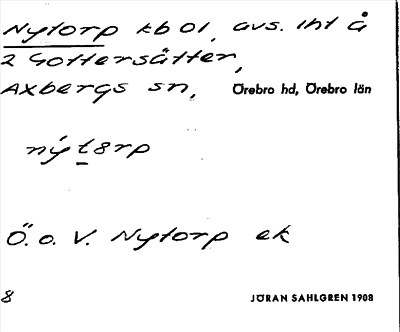 Nytorp kb 01, avs. lht å
2 Gottersätter,
Axbergs sn, Örebro hd, Örebro län
nýt8rp
Ö. o. V. Nytorp ek
8 JÖRAN SAHLGREN 1908